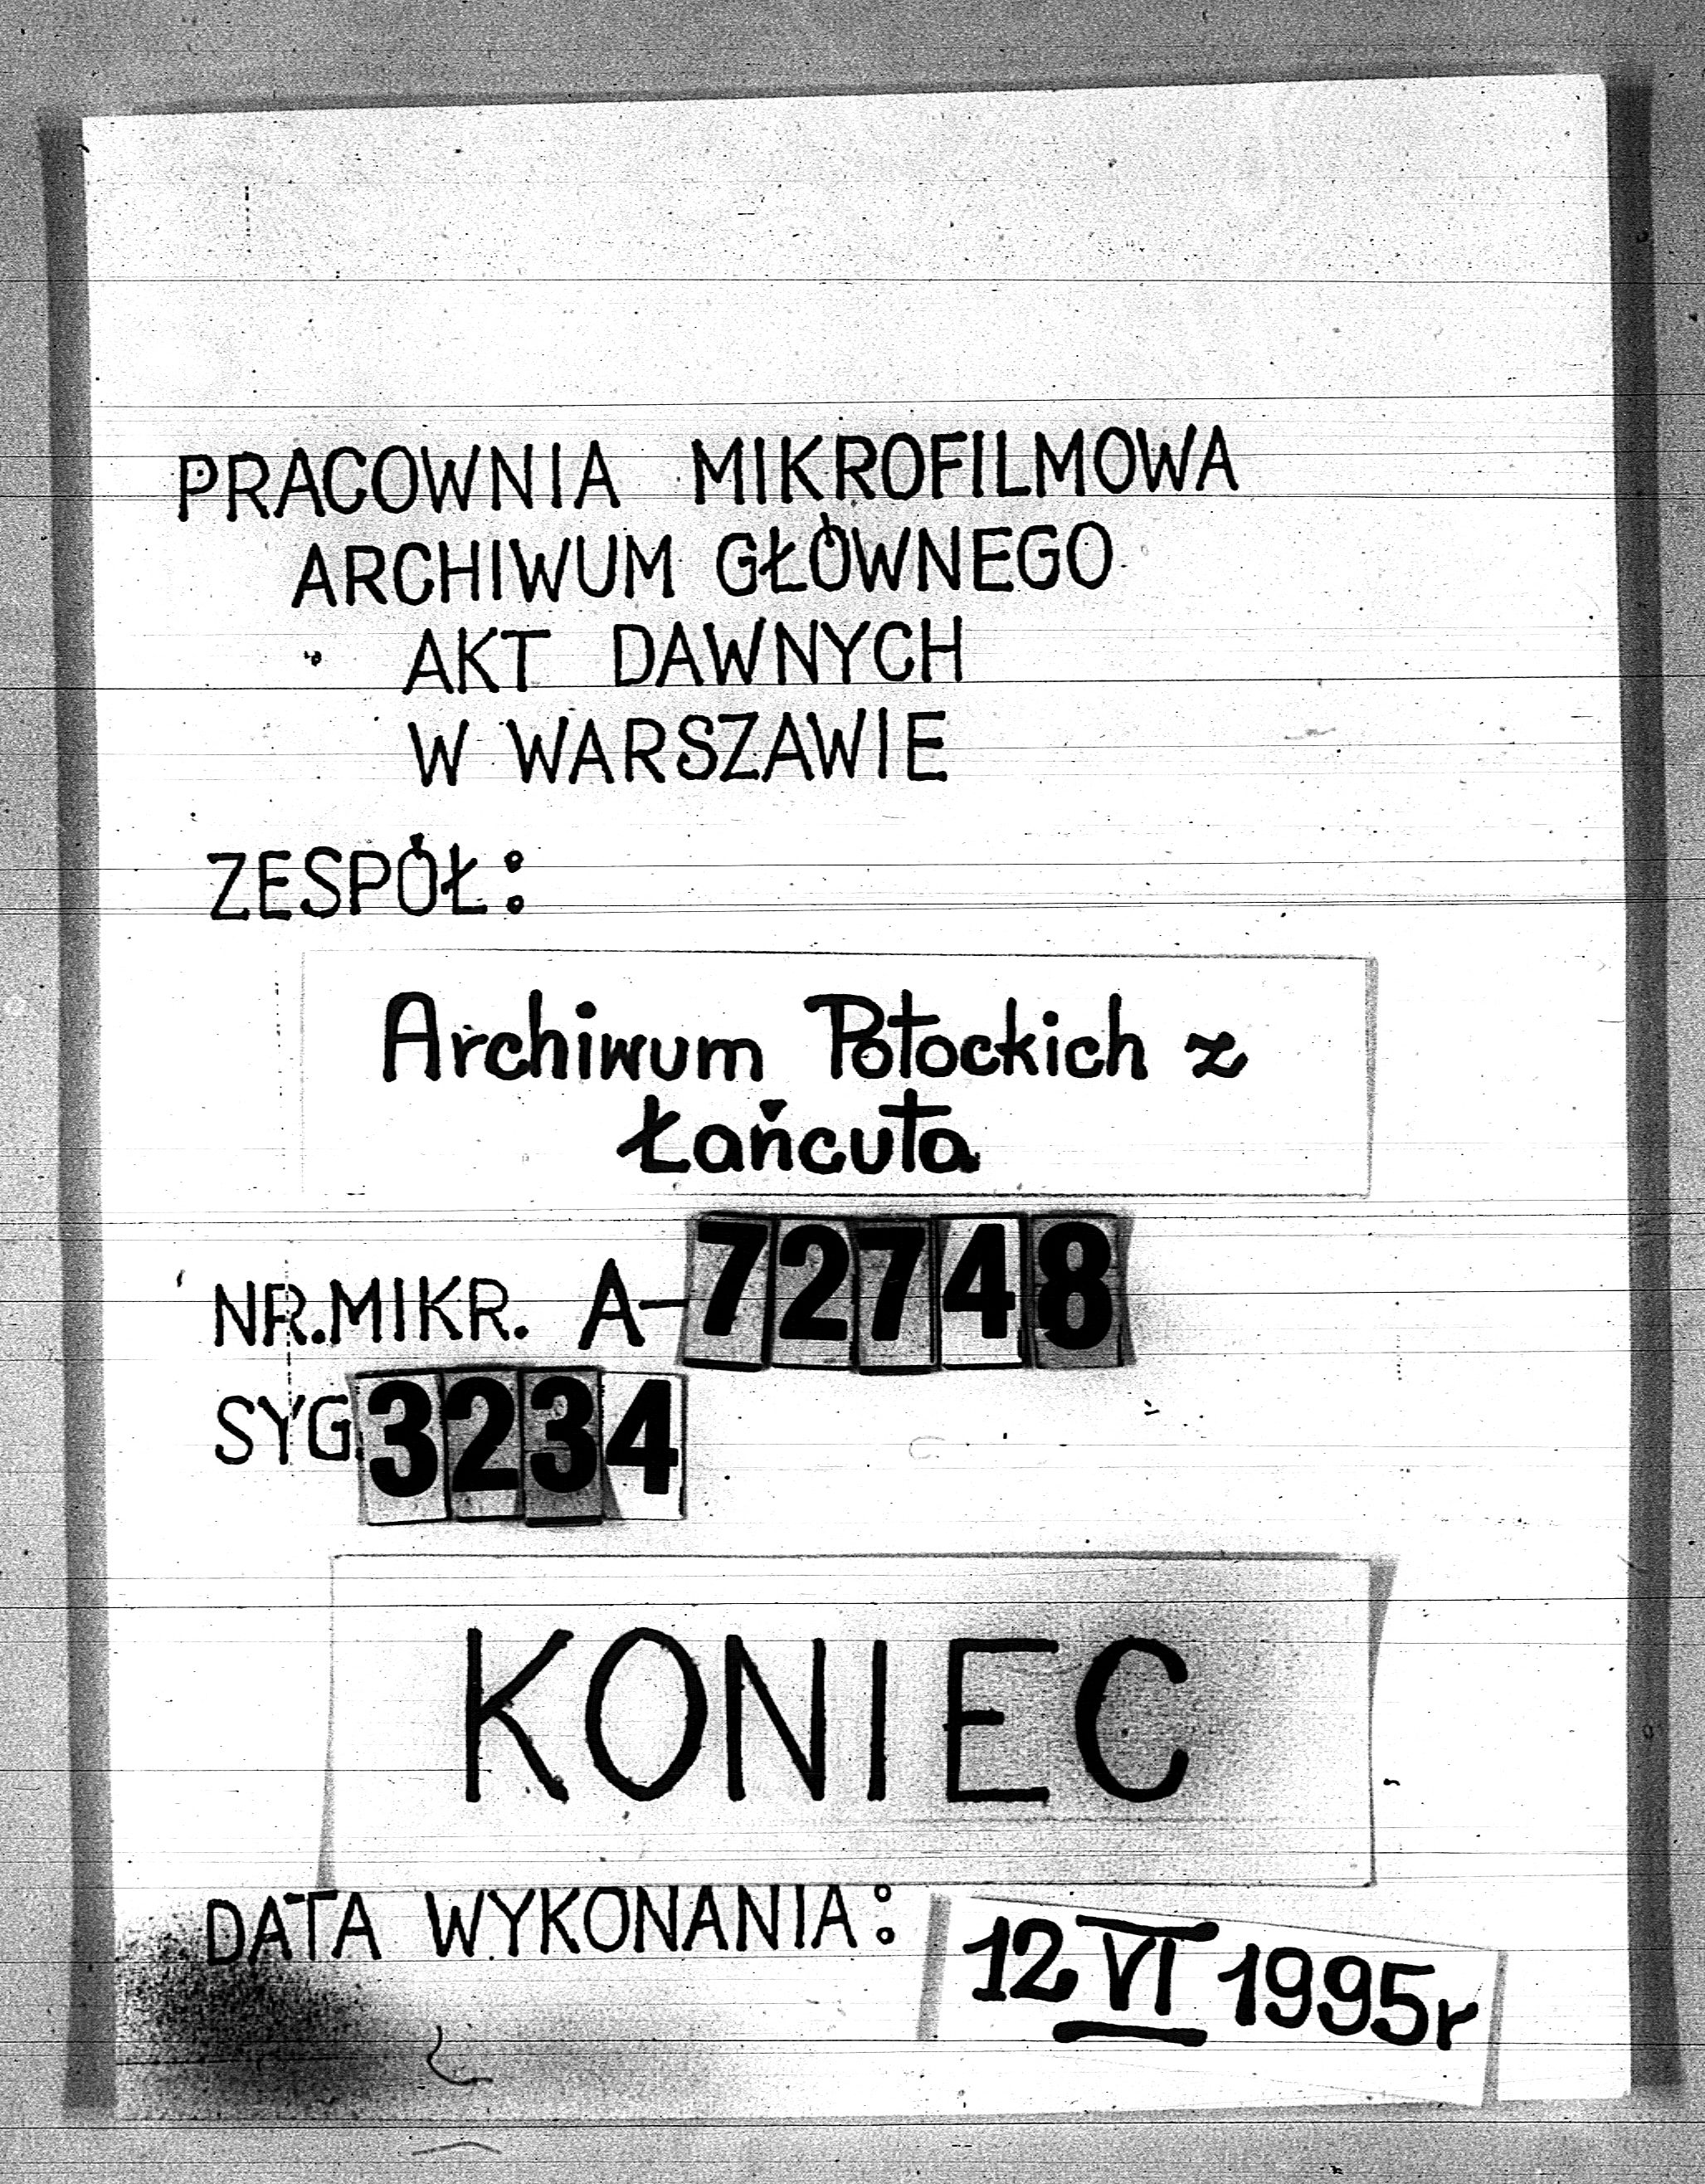 PRACOWNIA MIKROFILMOWA
ARCHIWUM GŁÓWNEGO
AKT DAWNYCH
W WARSZAWIE
ZESPÓŁ:
Archiwum Potockich z
Łańcuta
NR.MIKR. A-72748
SYG.3234
KONIEC
DATA WYKONANIA: 12 VI 1995r